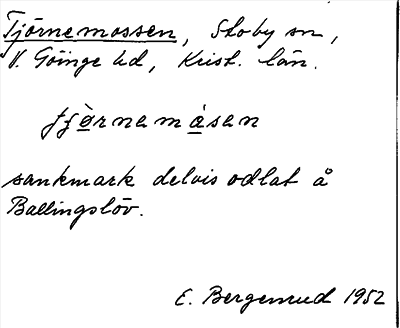 Tjörnemossen, Stoby sn,
V. Göinge hd, Krist. län.
tjø̀rnemåsen
sankmark delvis odlat å
Ballingslöv.
E. Bergemud 1952